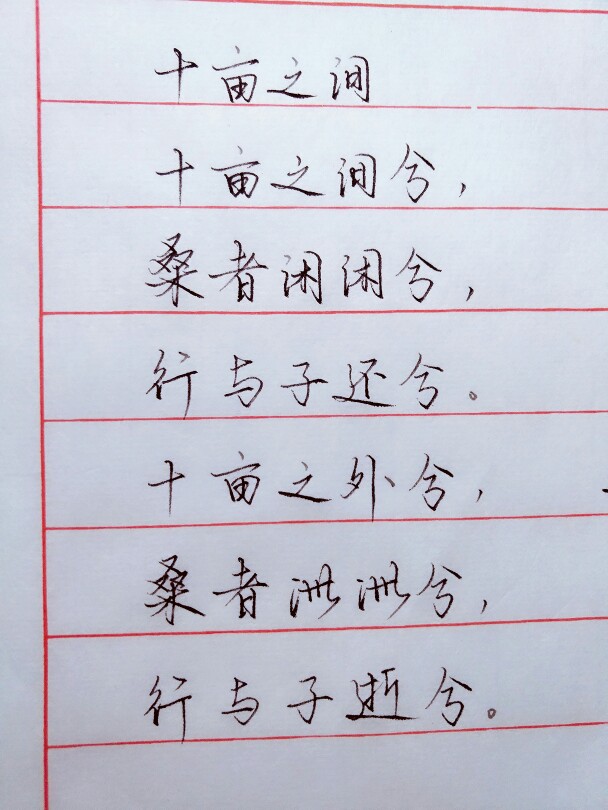 十亩之间
十亩之间兮，
桑者闲闲兮，
行与子还兮。
十亩之外兮，
桑者泄泄兮，
行与子逝兮。